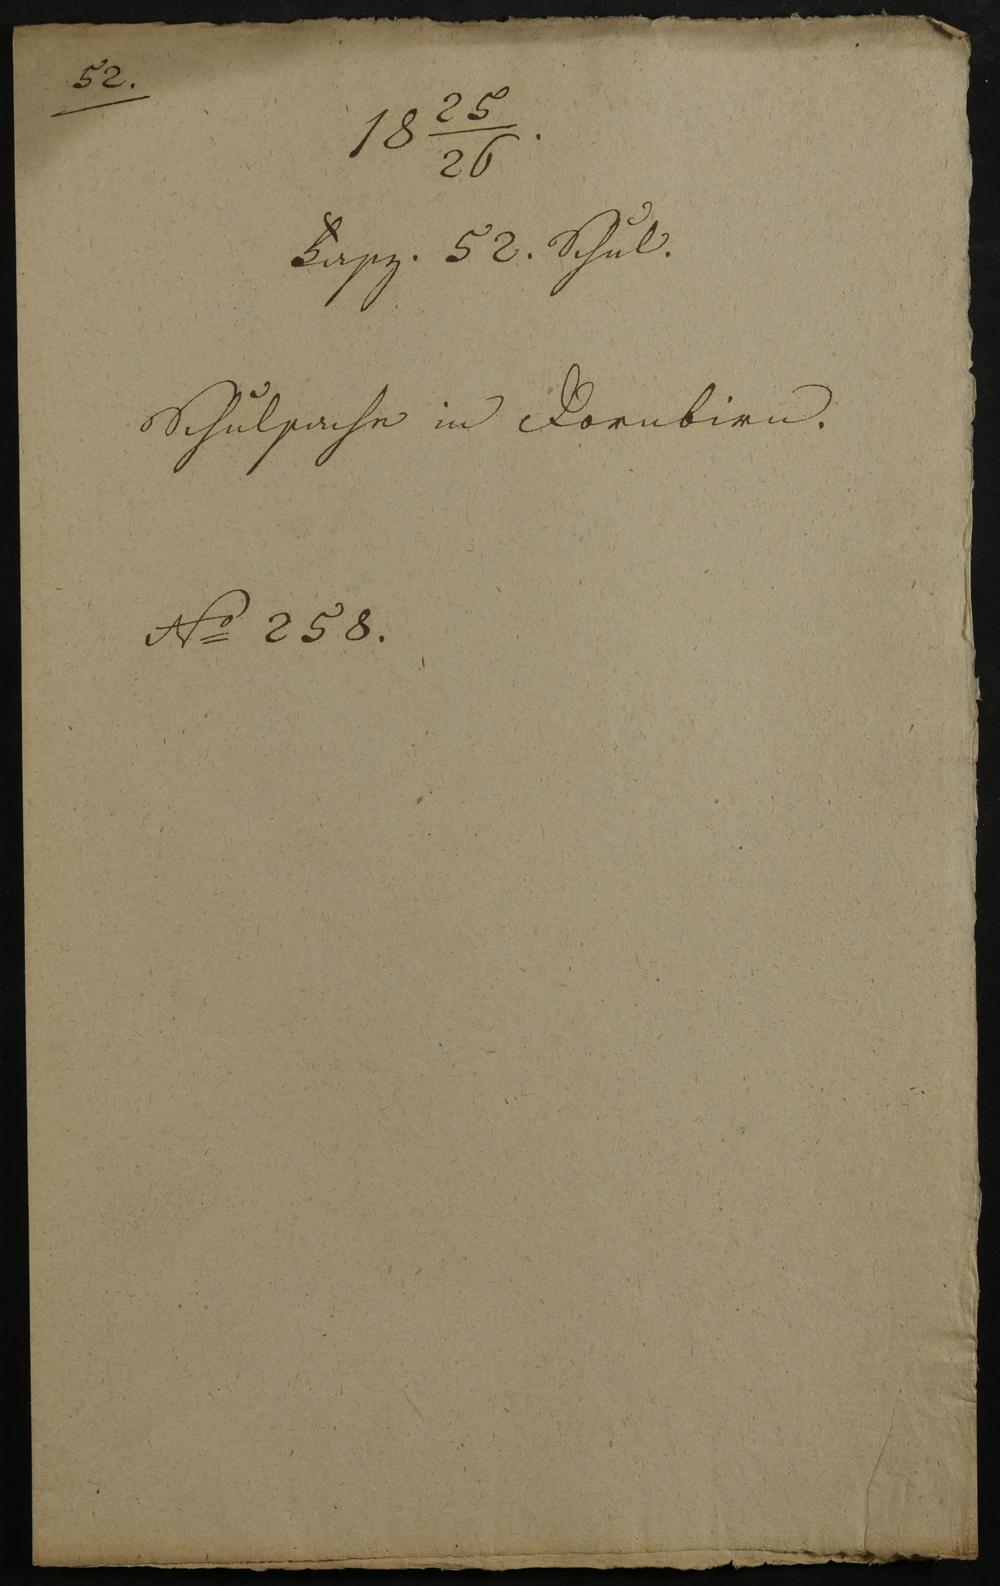 52.
18 25/26.
Fasz. 52. Schul.
Schulsache in Dornbirn.
No 258.